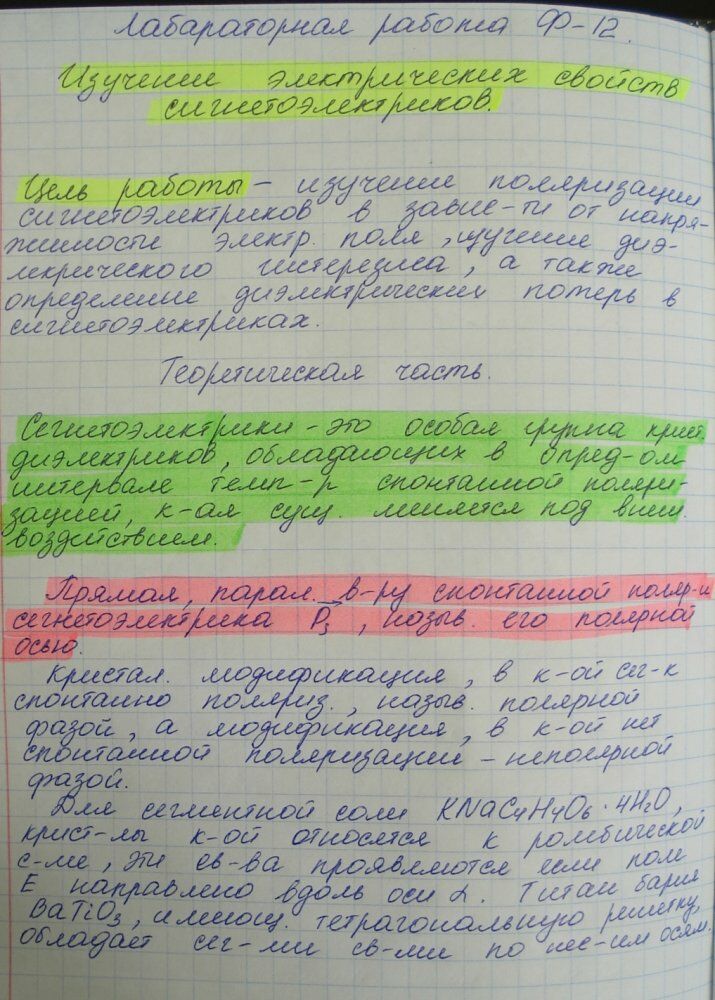 Лабараторная работа Ф-12.
Изучение электрических свойств
сигнетоэлектриков.
Цель работы – изучение поляризации
сигнетоэлектриков в завис-ти от напря-
жимости электр. поля, изучение диэ-
лекрического гистерезиса, а также
определение диэлектрических потерь в
сигнетоэлектриках.
Теоретическая часть.
Сегнетоэлектрики – это особая группа крист.
диэлектриков, обладающих в опред-ом
интервале темп-р спонтанной поляри-
зацией, к-ая сущ. меняется под внеш.
воздействием.
Прямая, парал. в-ру спонтанной поляр-и
сегнетоэлектрика P₃, назыв. его полярной
осью.
Кристал. модификация, в к-ой сег-к
спонтанно поляриз., назыв. полярной
фазой, а модификация, в к-ой нет
спонтанной поляризации – неполярной
фазой.
Для сегментной соли KNaC₄H₄O₆ · 4H₂O,
крист-лы к-ой относятся к ромбической
с-ме, эти св-ва проявляются если поле
E направлено вдоль оси α. Титан бария
BaTiO₃, имеющ. тетрагональную решетку,
обладает сег-ми св-ми по нес-им осям.